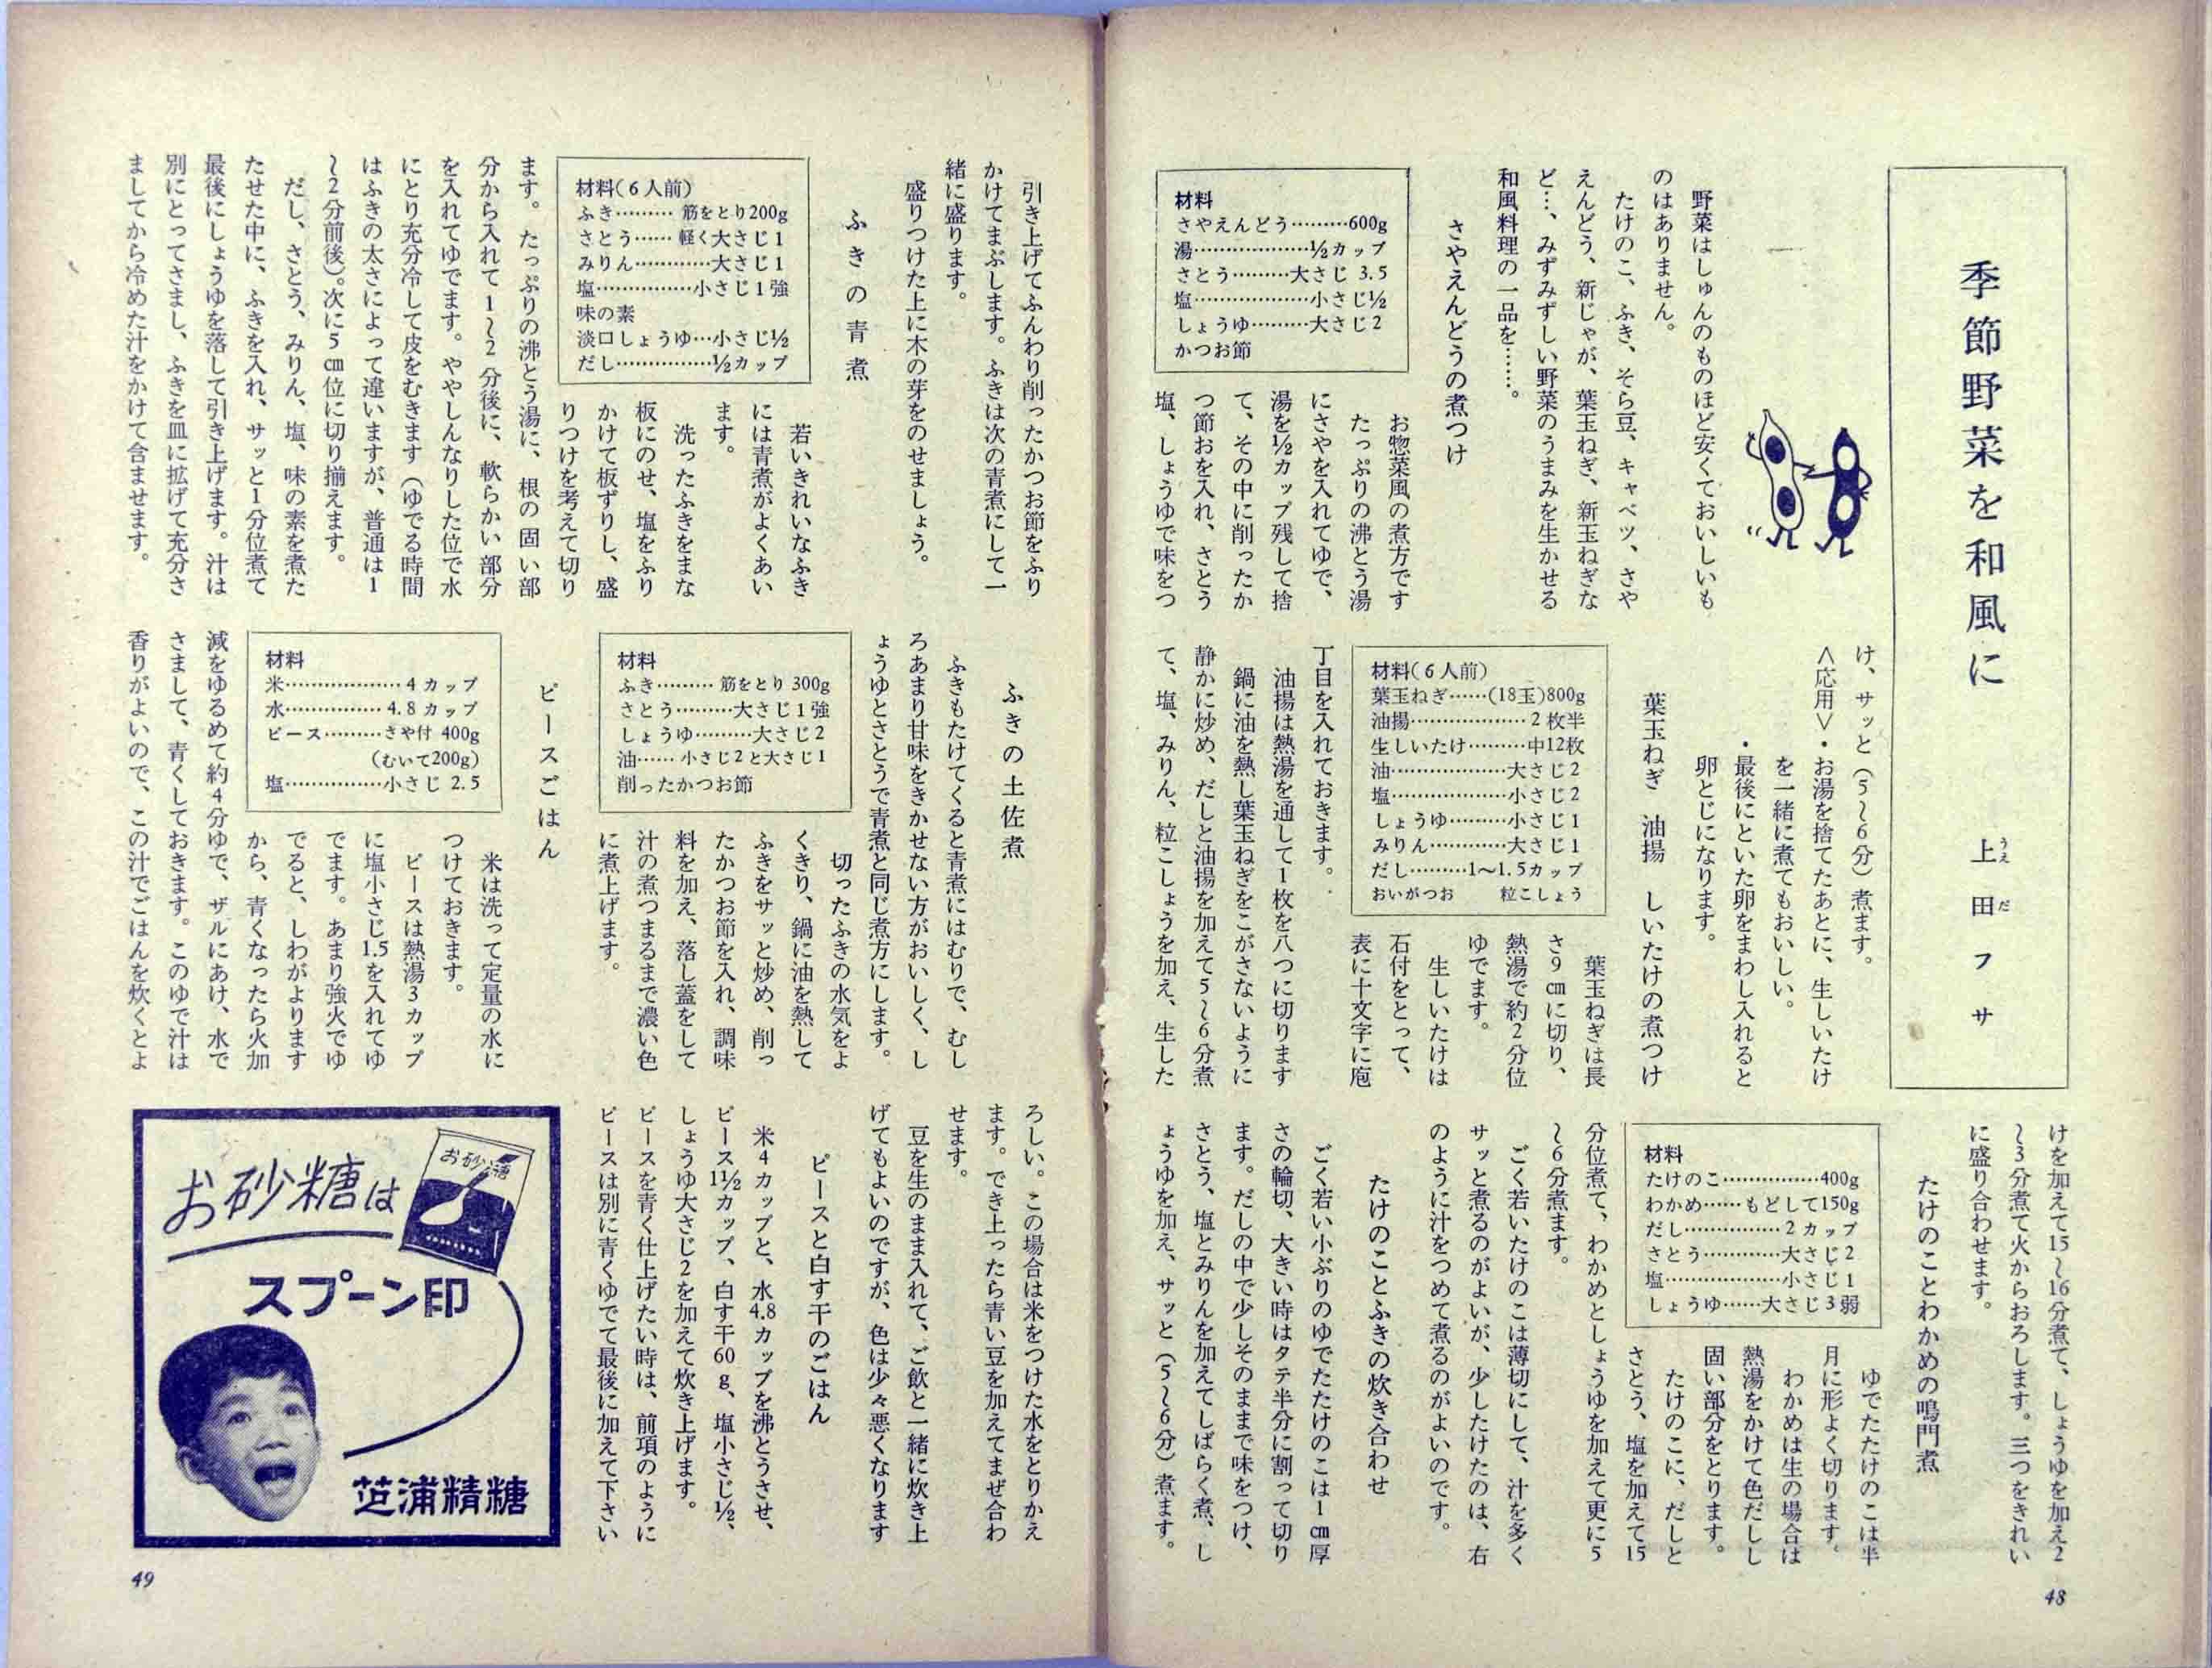 季節野菜を和風に
上田フサ
うえだ
野菜はしゅんのものほど安くておいしいも
のはありません。
たけのこ、ふき、そら豆、キャベツ、さや
えんどう、新じゃが、葉玉ねぎ、新玉ねぎな
ど…、みずみずしい野菜のうまみを生かせる
和風料理の一品を……。
さやえんどうの煮つけ
材料
さやえんどう………600g
湯………………½カップ
さとう………大さじ 3.5
塩………………小さじ½
しょうゆ………大さじ2
かつお節
お惣菜風の煮方です
たっぷりの沸とう湯
にさやを入れてゆで、
湯を½カップ残して捨
て、その中に削ったか
つ節おを入れ、さとう
塩、しょうゆで味をつ
け、サッと（5〜6分）煮ます。
＜応用＞・お湯を捨てたあとに、生しいたけ
を一緒に煮てもおいしい。
・最後にといた卵をまわし入れると
卵とじになります。
葉玉ねぎ 油揚 しいたけの煮つけ
材料（6人前）
葉玉ねぎ……(18玉)800g
油揚………………2枚半
生しいたけ………中12枚
油………………大さじ2
塩………………小さじ2
しょうゆ………小さじ1
みりん…………大さじ1
だし………1〜1.5カップ
おいがつお 粒こしょう
葉玉ねぎは長
さ9cmに切り、
熱湯で約2分位
ゆでます。
生しいたけは
石付をとって、
表に十文字に庖
丁目を入れておきます。
油揚は熱湯を通して1枚を八つに切ります
鍋に油を熱し葉玉ねぎをこがさないように
静かに炒め、だしと油揚を加えて5〜6分煮
て、塩、みりん、粒こしょうを加え、生した
けを加えて15〜16分煮て、しょうゆを加え2
〜3分煮て火からおろします。三つをきれい
に盛り合わせます。
たけのことわかめの鳴門煮
材料
たけのこ……………400g
わかめ……もどして150g
だし……………2カップ
さとう…………大さじ2
塩………………小さじ1
しょうゆ……大さじ3弱
ゆでたたけのこは半
月に形よく切ります。
わかめは生の場合は
熱湯をかけて色だしし
固い部分をとります。
たけのこに、だしと
さとう、塩を加えて15
分位煮て、わかめとしょうゆを加えて更に5
〜6分煮ます。
ごく若いたけのこは薄切にして、汁を多く
サッと煮るのがよいが、少したけたのは、右
のように汁をつめて煮るのがよいのです。
たけのことふきの炊き合わせ
ごく若い小ぶりのゆでたたけのこは1cm厚
さの輪切、大きい時はタテ半分に割って切り
ます。だしの中で少しそのままで味をつけ、
さとう、塩とみりんを加えてしばらく煮、し
ょうゆを加え、サッと（5〜6分）煮ます。
48
引き上げてふんわり削ったかつお節をふり
かけてまぶします。ふきは次の青煮にして一
緒に盛ります。
盛りつけた上に木の芽をのせましょう。
ふきの青煮
材料（6人前）
ふき………筋をとり200g
さとう……軽く大さじ1
みりん…………大さじ1
塩……………小さじ1強
味の素
淡口しょうゆ…小さじ½
だし……………½カップ
若いきれいなふき
には青煮がよくあい
ます。
洗ったふきをまな
板にのせ、塩をふり
かけて板ずりし、盛
りつけを考えて切り
ます。たっぷりの沸とう湯に、根の固い部
分から入れて1〜2分後に、軟らかい部分
を入れてゆでます。ややしんなりした位で水
にとり充分冷して皮をむきます（ゆでる時間
はふきの太さによって違いますが、普通は1
〜2分前後）。次に5cm位に切り揃えます。
だし、さとう、みりん、塩、味の素を煮た
たせた中に、ふきを入れ、サッと1分位煮て
最後にしょうゆを落して引き上げます。汁は
別にとってさまし、ふきを皿に拡げて充分さ
ましてから冷めた汁をかけて含ませます。
ふきの土佐煮
ふきもたけてくると青煮にはむりで、むし
ろあまり甘味をきかせない方がおいしく、し
ょうゆとさとうで青煮と同じ煮方にします。
材料
ふき………筋をとり 300g
さとう………大さじ1強
しょうゆ………大さじ2
油……小さじ2と大さじ1
削ったかつお節
切ったふきの水気をよ
くきり、鍋に油を熱して
ふきをサッと炒め、削っ
たかつお節を入れ、調味
料を加え、落し蓋をして
汁の煮つまるまで濃い色
に煮上げます。
ピースごはん
材料
米………………4カップ
水……………4.8カップ
ピース………さや付 400g
(むいて200g)
塩……………小さじ 2.5
米は洗って定量の水に
つけておきます。
ピースは熱湯3カップ
に塩小さじ1.5を入れてゆ
でます。あまり強火でゆ
でると、しわがよります
から、青くなったら火加
減をゆるめて約4分ゆで、ザルにあけ、水で
さまして、青くしておきます。このゆで汁は
香りがよいので、この汁でごはんを炊くとよ
ろしい。この場合は米をつけた水をとりかえ
ます。でき上ったら青い豆を加えてまぜ合わ
せます。
豆を生のまま入れて、ご飲と一緒に炊き上
げてもよいのですが、色は少々悪くなります
ピースと白す干のごはん
米4カップと、水4.8カップを沸とうさせ、
ピース1½カップ、白す干60g、塩小さじ½、
しょうゆ大さじ2を加えて炊き上げます。
ピースを青く仕上げたい時は、前項のように
ピースは別に青くゆでて最後に加えて下さい
お砂糖は
お砂糖
スプーン印
芝浦精糖
49